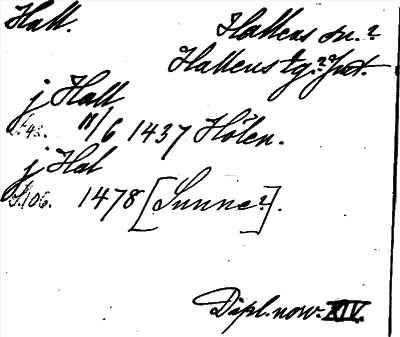 Hall.
Hallens sn.?
Hallens tg.? Jmt.
j Hall
S. 48. 11/6 1437 Hölen.
j Hal
S. 106. 1478 [Sunne?].
Dipl. norv. XIV.